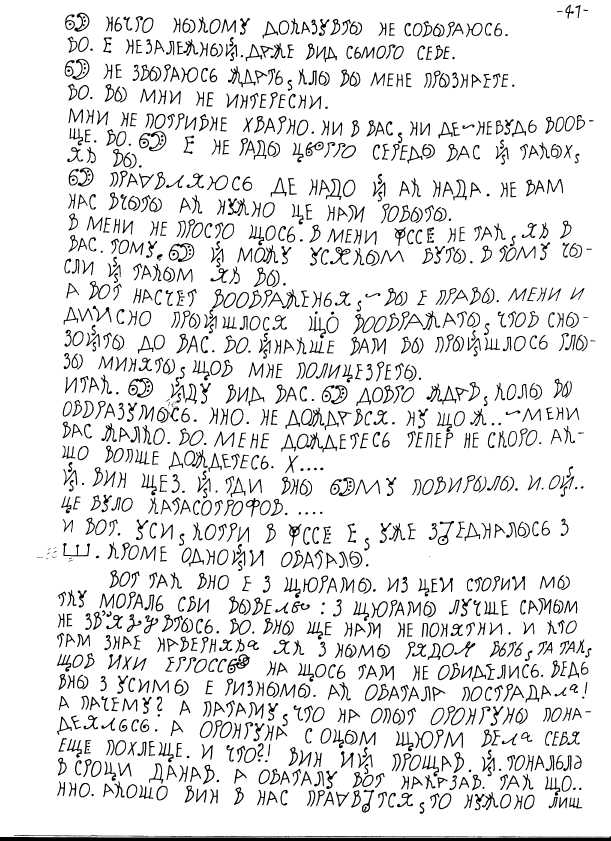 -41-
НЫЧГО НЫКОМУ ДОКАЗУВТЫ НЕ СОБЫРАЮСЬ.
ВО. Е НЕЗАЛЕЖНЫЙ. ДАЖЕ ВИД СЬМОГО СЕБЕ.
НЕ ЗБЫРАЮСЬ ЖДАТЬ, КЛО ВЫ МЕНЕ ПРЫЗНАЕТЕ.
ВО. ВЫ МНИ НЕ ИНТЕРЕСНИ.
МНИ НЕ ПОТРИВНЕ ХВАРНО. НИ В ВАС, НИ ДЕ-НЕВУДЬ ВООБ-
ЩЕ. ВО. Е НЕ РАДЫ ЦЬОГГО СЕРЕДЫ ВАС Й ТАКЫХ,
ЯК ВЫ.
ПРАВЛЯЮСЬ ДЕ НАДО Й АК НАДА. НЕ ВАМ
НАС ВЧЫТЫ АК НУЖНО ЦЕ НАМ РОБЫТЫ.
В МЕНИ НЕ ПРОСТО ЩОСЬ. В МЕНИ ФССЕ НЕ ТАК, ЯК В
ВАС. ТОМУ. Й МОЖУ УСЯКЫМ БУТЫ. В ТОМУ ЧЫ-
СЛИ Й ТАКЫМ ЯК ВЫ.
А ВОТ НАСЧЕТ ВООБРАЖЕНЬЯ, - ВЫ Е ПРАВЫ. МЕНИ И
ДИИСНО ПРЫЙШЛОСЯ ЩО ВООБРАЖАТЫ, ЧТОВ СНЫ-
ЗОЙТЫ ДО ВАС. ВО. ЙНАКШЕ ВАМ ВЫ ПРЫЙШЛОСЬ ГЛЫ-
ЗЫ МИНЯТЫ, ЩОВ МНЕ ПОЛИЦЕЗРЕТЫ.
ИТАК. ЙДУ ВИД ВАС. ДОВГО ЖДАВ, КОЛЫ ВЫ
ОВДРАЗУМЫСЬ. ННО. НЕ ДОЖДАВСЯ. НУ ЩО Ж.. - МЕНИ
ВАС ЖАЛКО. ВО. МЕНЕ ДОЖДЕТЕСЬ ТЕПЕР НЕ СКОРО. АК-
ЩО ВОПШЕ ДОЖДЕТЕСЬ. Х....
Й. ВИН ЩЕЗ. Й. ТДИ ВНЫ МУ ПОВИРЫЛЫ. И. ОЙ..
ЦЕ БУЛО КАТАСОТРОФОВ. ....
И ВОТ. УСИ, КОТРИ В ФССЕ Е, УЖЕ З'ЕДНАЛЫСЬ З
Ш. КРОМЕ ОДНОЙИ ОВАТАЛЫ.
ВОТ ТАК ВНО Е З ЩЮРАМЫ. ИЗ ЦЕИ СТОРИИ МЫ
ТКУ МОРАЛЬ СВИ ВЫВЕЛЬЫ : З ЩЮРАМЫ ЛУЧШЕ САМЫМ
НЕ ЗВ'ЯЗУВТЫСЬ. ВО. ВНЫ ЩЕ НАМ НЕ ПОНЯТНИ. И КТО
ТАМ ЗНАЕ НАВЕРНЯКА АК З НЫМЫ РЯДОМ ВЫТЬ, ТА ТАК,
ЩОВ ИХИ НА ЩОСЬ ТАМ НЕ ОВИДЕЛИСЬ. ВЕДЬ
ВНЫ З УСИМЫ Е РИЗНЫМЫ. АК ОВАТАЛА ПОСТРАДАЛА!
А ПАЧЕМУ? А ПАТАМУ, ЧТО НА ОПЫТ ОРОНГУНЫ ПОНА-
ДЕЯЛЬСЬ. А ОРОНГУНА С ОЦЫМ ЩЮРМ ВЕЛА СЕБЯ
ЕЩЕ ПОХЛЕЩЕ. И ЧТО?! ВИН ИЙ ПРОЩАВ. Й. ТОНАЛЬЛЫ
В СРОЦИ ДАНАВ. А ОВАТАЛУ ВОТ НАКАЗАВ. ТАК ЩО..
ННО. АКЩО ВИН В НАС ПРАВ'ТСЯ, ТО НУЖОНО ЛИШ